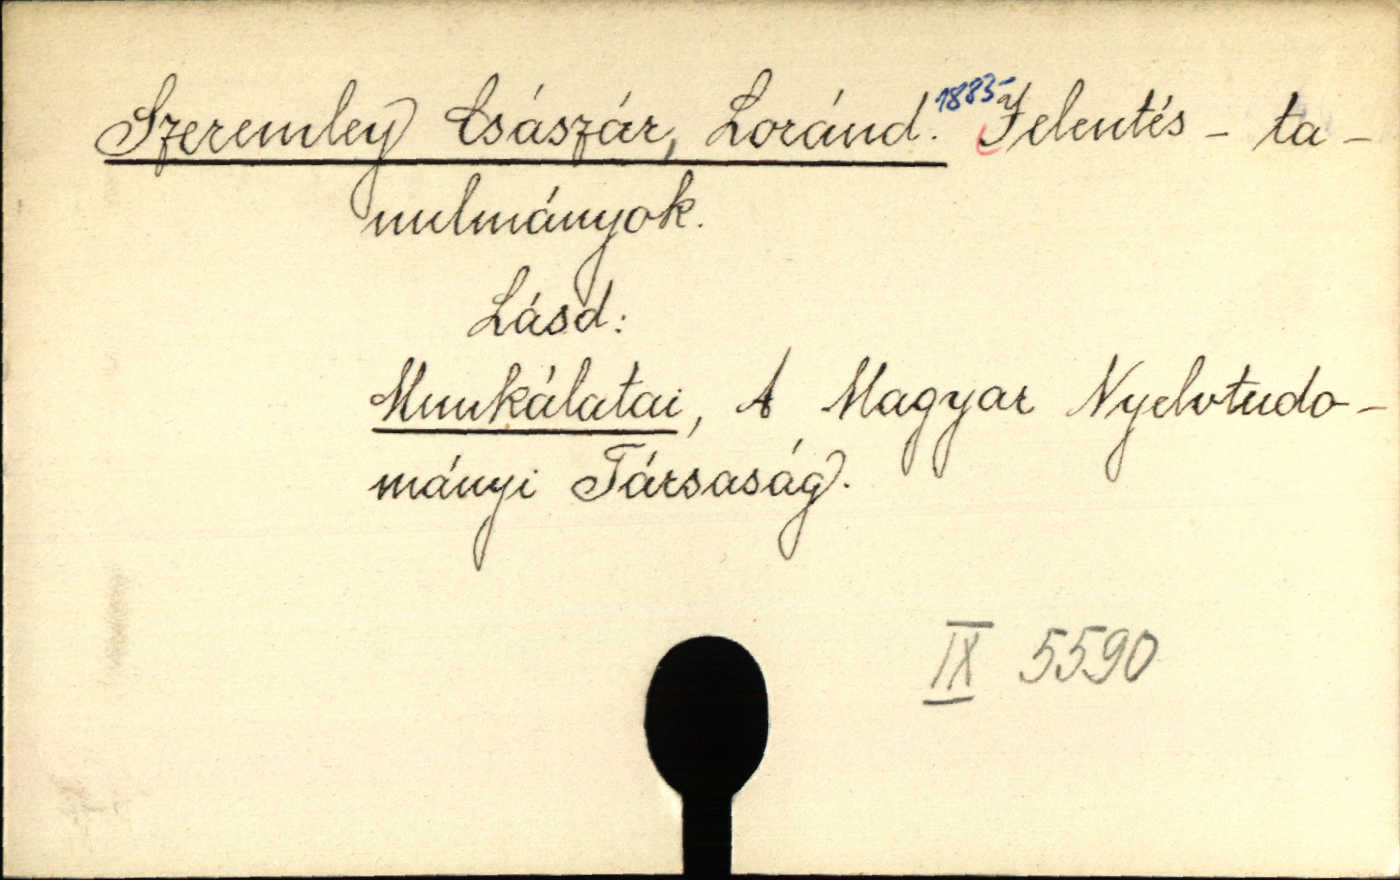 Szeremley Császár, Loránd. 1883- Jelentés - ta-
nulmányok.
Lásd:
Munkálatai, A Magyar Nyelvtudo-
mányi Társaság.
IX 5590